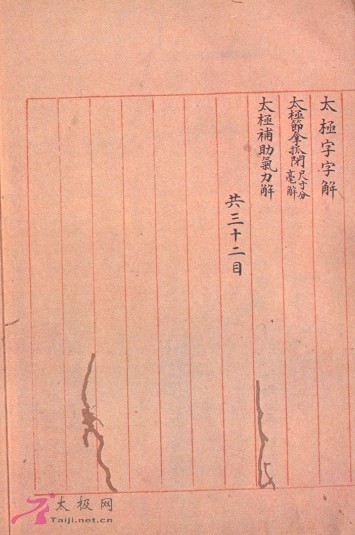 太極字字解
太極節拿抓閉尺寸分毫解
太極補助氣力解
共三十二目
太极网
Taiji.net.cn